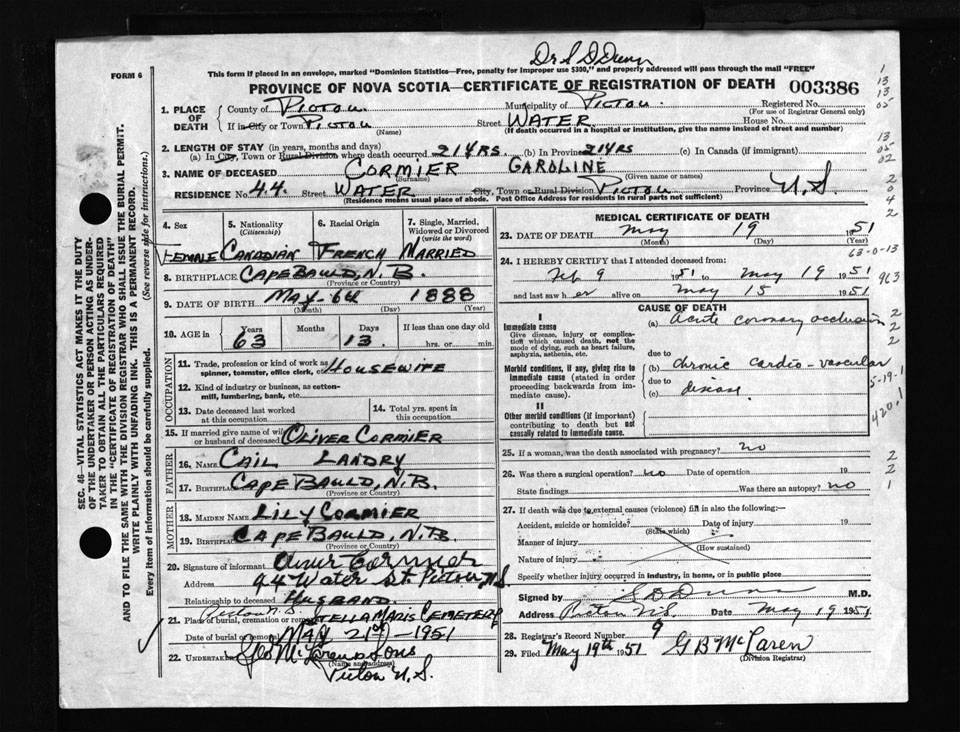 Dr S D Dunn
FORM 6
This form if placed in an envelope, marked "Dominion Statistics—Free, penalty for improper use $300," and properly addressed will pass through the mail "FREE"
PROVINCE OF NOVA SCOTIA—CERTIFICATE OF REGISTRATION OF DEATH 003386
1. PLACE OF DEATH
County of Pictou Municipality of Pictou Registered No.
(For use of Registrar General only)
If in City or Town Pictou Street WATER House No.
(Name) (If death occurred in a hospital or institution, give the name instead of street and number)
2. LENGTH OF STAY (in years, months and days)
(a) In City, Town or Rural Division where death occurred 21YRS. (b) In Province 21YRS (c) In Canada (if immigrant)
3. NAME OF DECEASED CORMIER GAROLINE
(Surname) (Given name or names)
RESIDENCE No. 44. Street WATER City, Town or Rural Division PICTOU Province N.S.
(Residence means usual place of abode. Post Office Address for residents in rural parts not sufficient)
4. Sex 5. Nationality (Citizenship) 6. Racial Origin 7. Single, Married, Widowed or Divorced (write the word)
FEMALE CANADIAN FRENCH MARRIED
8. BIRTHPLACE CAPE BAULD, N.B.
(Province or Country)
9. DATE OF BIRTH MAY 6th 1888
(Month) (Day) (Year)
10. AGE in Years Months Days If less than one day old
63 13. hrs. or min.
OCCUPATION
11. Trade, profession or kind of work as spinner, teamster, office clerk, etc. HOUSEWIFE
12. Kind of industry or business, as cotton-mill, lumbering, bank, etc.
13. Date deceased last worked at this occupation 14. Total yrs. spent in this occupation
15. If married give name of wife or husband of deceased OLIVER CORMIER
FATHER
16. NAME CAIL LANDRY
17. BIRTHPLACE CAPE BAULD, N.B.
(Province or Country)
MOTHER
18. MAIDEN NAME LILY CORMIER
19. BIRTHPLACE CAPE BAULD, N.B.
(Province or Country)
20. Signature of informant Oliver Cormier
Address 44 Water St. Pictou N.S.
Relationship to deceased HUSBAND.
Pictou N.S.
21. Place of burial, cremation or removal STELLA MARIS CEMETERY
Date of burial or removal MAY 21st—1951
22. UNDERTAKER Geo McLaren & Sons
(Name and address)
Pictou N.S.
MEDICAL CERTIFICATE OF DEATH
23. DATE OF DEATH May 19 1951
(Month) (Day) (Year)
24. I HEREBY CERTIFY that I attended deceased from:
Feb 9 1951 to May 19 1951
and last saw her alive on May 15 1951
CAUSE OF DEATH
I
Immediate cause
Give disease, injury or complication which caused death, not the mode of dying, such as heart failure, asphyxia, asthenia, etc.
(a) Acute coronary occlusion
due to
Morbid conditions, if any, giving rise to immediate cause (stated in order proceeding backwards from immediate cause).
(b) Chronic cardio-vascular
due to
(c) disease.
II
Other morbid conditions (if important) contributing to death but not causally related to immediate cause.
25. If a woman, was the death associated with pregnancy? no
26. Was there a surgical operation? no Date of operation 19
State findings Was there an autopsy? no
27. If death was due to external causes (violence) fill in also the following:—
Accident, suicide or homicide? Date of injury 19
(State which)
Manner of injury
(How sustained)
Nature of injury
Specify whether injury occurred in industry, in home, or in public place
Signed by S D Dunn M.D.
Address Pictou N.S. Date May 19 1951
28. Registrar's Record Number 9
29. Filed May 19th 1951 G B McLaren
(Division Registrar)
1
13
13
05
13
05
02
2
0
4
2
63-0-13
963
2
2
2
5-19-1
420.1
2
2
1
SEC. 46—VITAL STATISTICS ACT MAKES IT THE DUTY
OF THE UNDERTAKER OR PERSON ACTING AS UNDER-
TAKER TO OBTAIN ALL THE PARTICULARS REQUIRED
IN THE "CERTIFICATE OF REGISTRATION OF DEATH"
AND TO FILE THE SAME WITH THE DIVISION REGISTRAR WHO SHALL ISSUE THE BURIAL PERMIT.
WRITE PLAINLY WITH UNFADING INK. THIS IS A PERMANENT RECORD.
Every item of information should be carefully supplied. (See reverse side for instructions.)